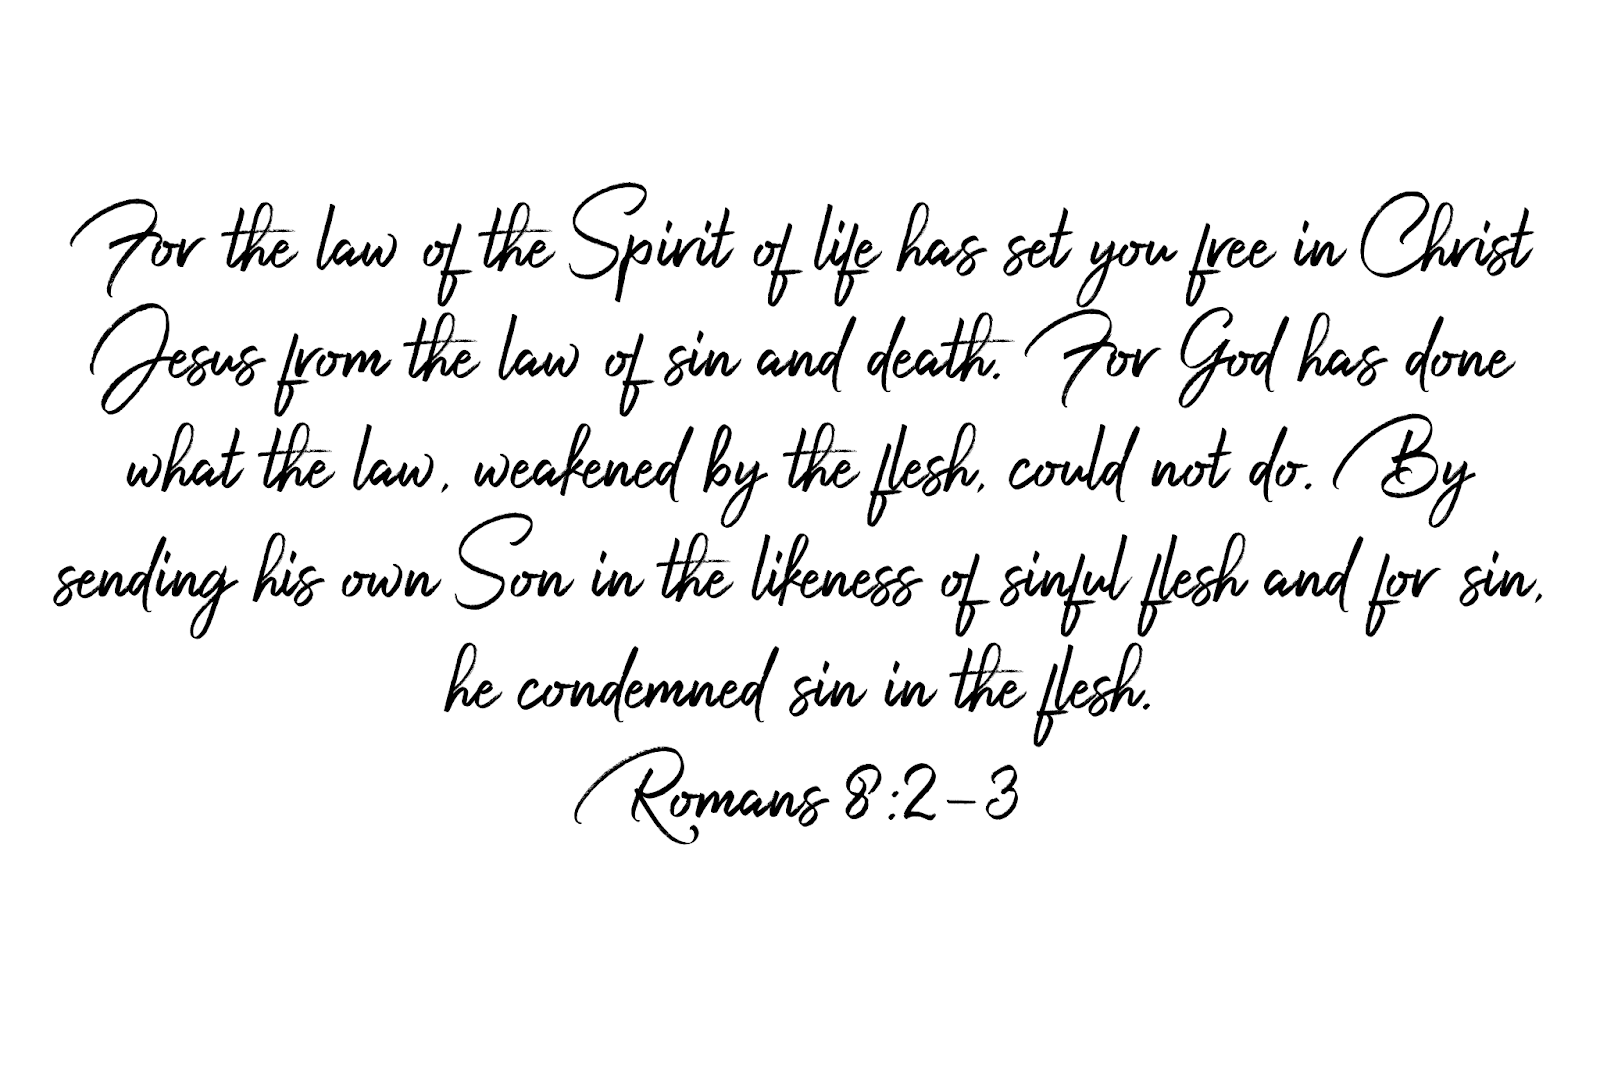 For the law of the Spirit of life has set you free in Christ
Jesus from the law of sin and death. For God has done
what the law, weakened by the flesh, could not do. By
sending his own Son in the likeness of sinful flesh and for sin,
he condemned sin in the flesh.
Romans 8:2-3